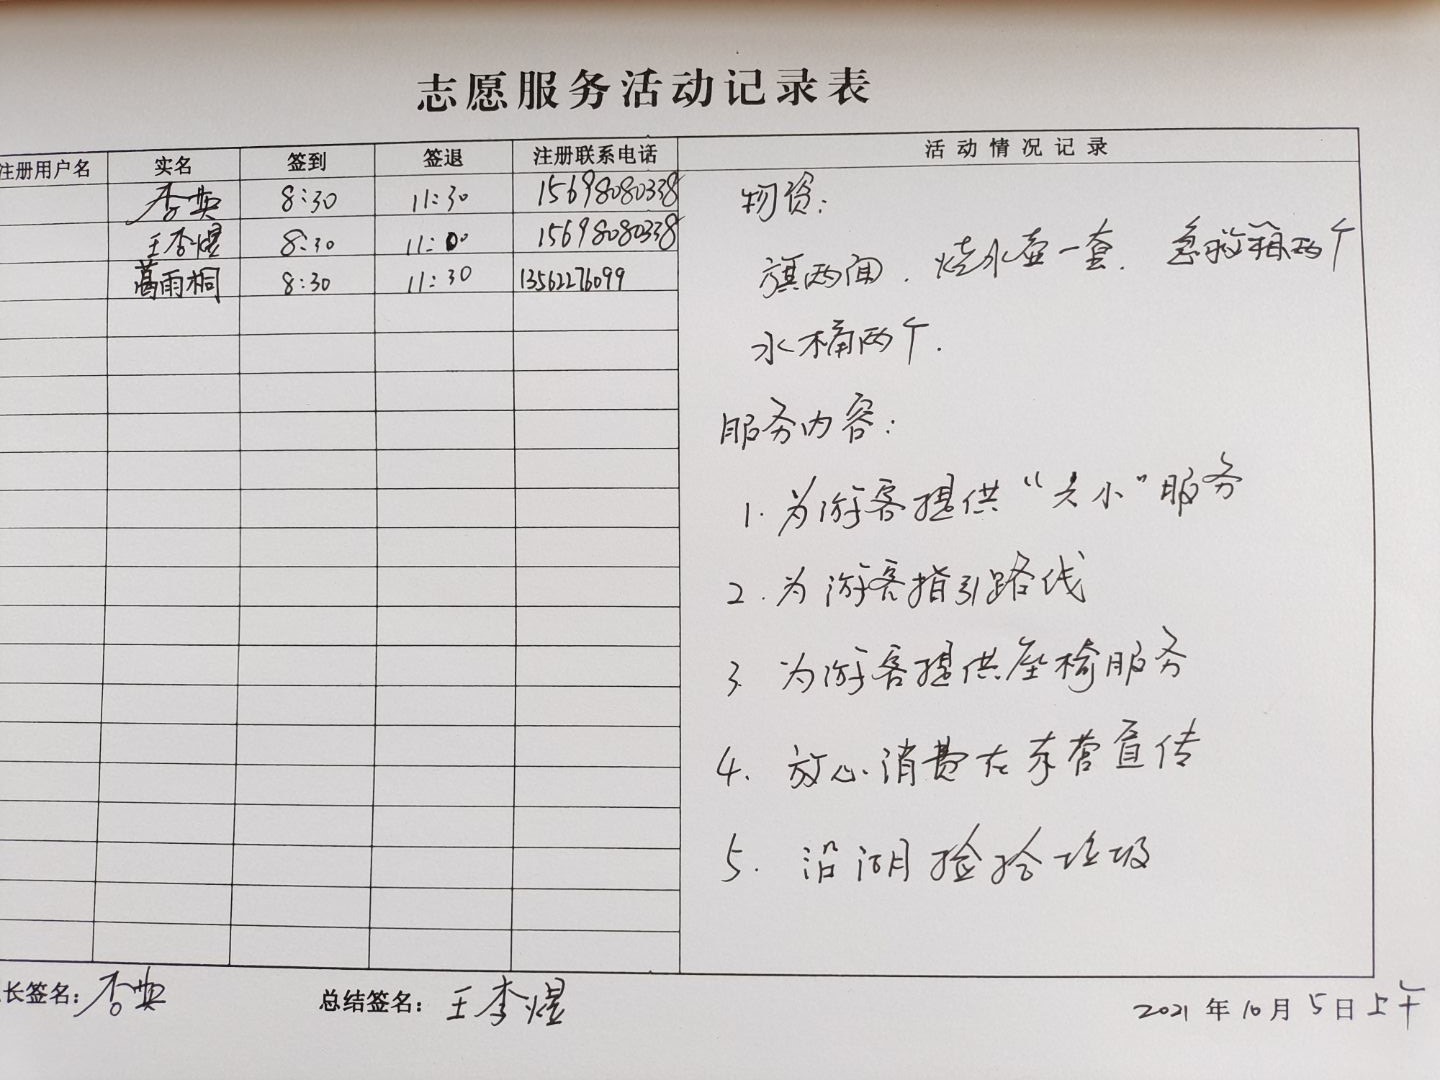 志愿服务活动记录表
注册用户名 实名 签到 签退 注册联系电话 活动情况记录
李典 8:30 11:30 15698080338
王李煜 8:30 11:00 15698080338
葛雨桐 8:30 11:30 13562276099
物资:
旗两面. 烧水壶一套. 急救箱两个
水桶两个.
服务内容:
1. 为游客提供“大小”服务
2. 为游客指引路线
3. 为游客提供座椅服务
4. 放心消费在东营宣传
5. 沿湖捡拾垃圾
长签名: 李典 总结签名: 王李煜 2021年10月5日上午